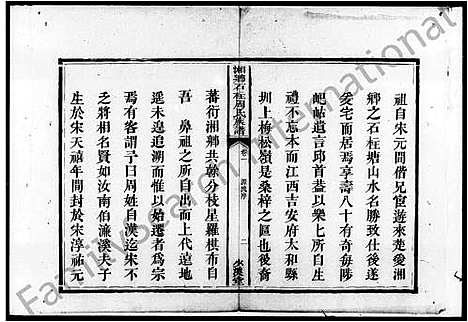 祖自宋元間偕兄宦遊來楚愛湘
鄉之石柱塘山水名勝致仕後遂
爰宅而居焉享壽八十有奇每陟
岵岵遺言邱首葢以樂七所自生
禮不忘本而江西吉安府太和縣
圳上梅松嶺是桑梓之區也後裔
湘鄉石柱周氏族譜
卷一
二
蕃衍湘鄉共幹分枝星羅棋布自
吾鼻祖之所自出而上代遠地
遥未遑追溯而惟以始遷者為宗
焉有客謂予曰周姓自漢迄宋不
乏將相名賢如汝南伯濂溪夫子
生於宋天禧年間封於宋淳祐元
FamilySearch International